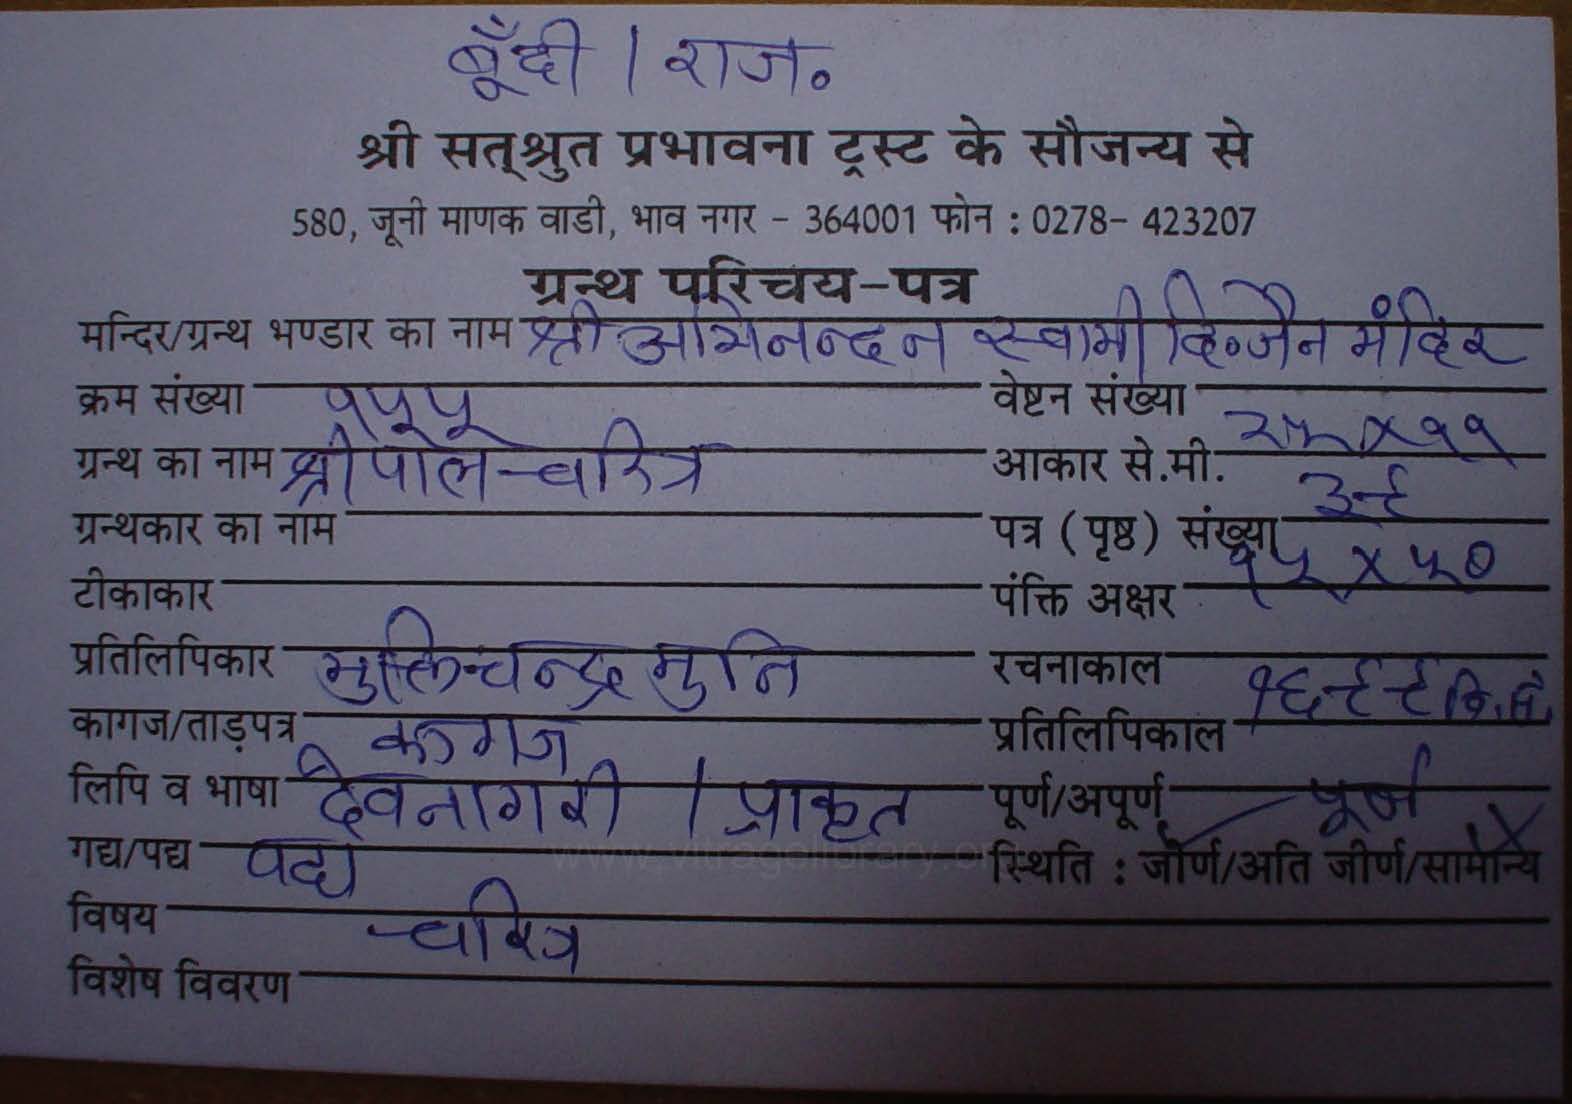 बूँदी / राज.
श्री सत्श्रुत प्रभावना ट्रस्ट के सौजन्य से
580, जूनी माणक वाडी, भाव नगर - 364001 फोन : 0278- 423207
ग्रन्थ परिचय-पत्र
मन्दिर/ग्रन्थ भण्डार का नाम श्री अभिनन्दन स्वामी दि॰जैन मंदिर
क्रम संख्या १५५ वेष्टन संख्या
ग्रन्थ का नाम श्रीपाल-चरित्र आकार से.मी. २५×११
ग्रन्थकार का नाम पत्र (पृष्ठ) संख्या ३९
टीकाकार पंक्ति अक्षर १५ × ५०
प्रतिलिपिकार मुक्तिचन्द्र मुनि रचनाकाल
कागज/ताड़पत्र कागज प्रतिलिपिकाल १६९९ वि.सं.
लिपि व भाषा देवनागरी / प्राकृत पूर्ण/अपूर्ण पूर्ण
गद्य/पद्य पद्य स्थिति : जीर्ण/अति जीर्ण/सामान्य
विषय चरित्र
विशेष विवरण